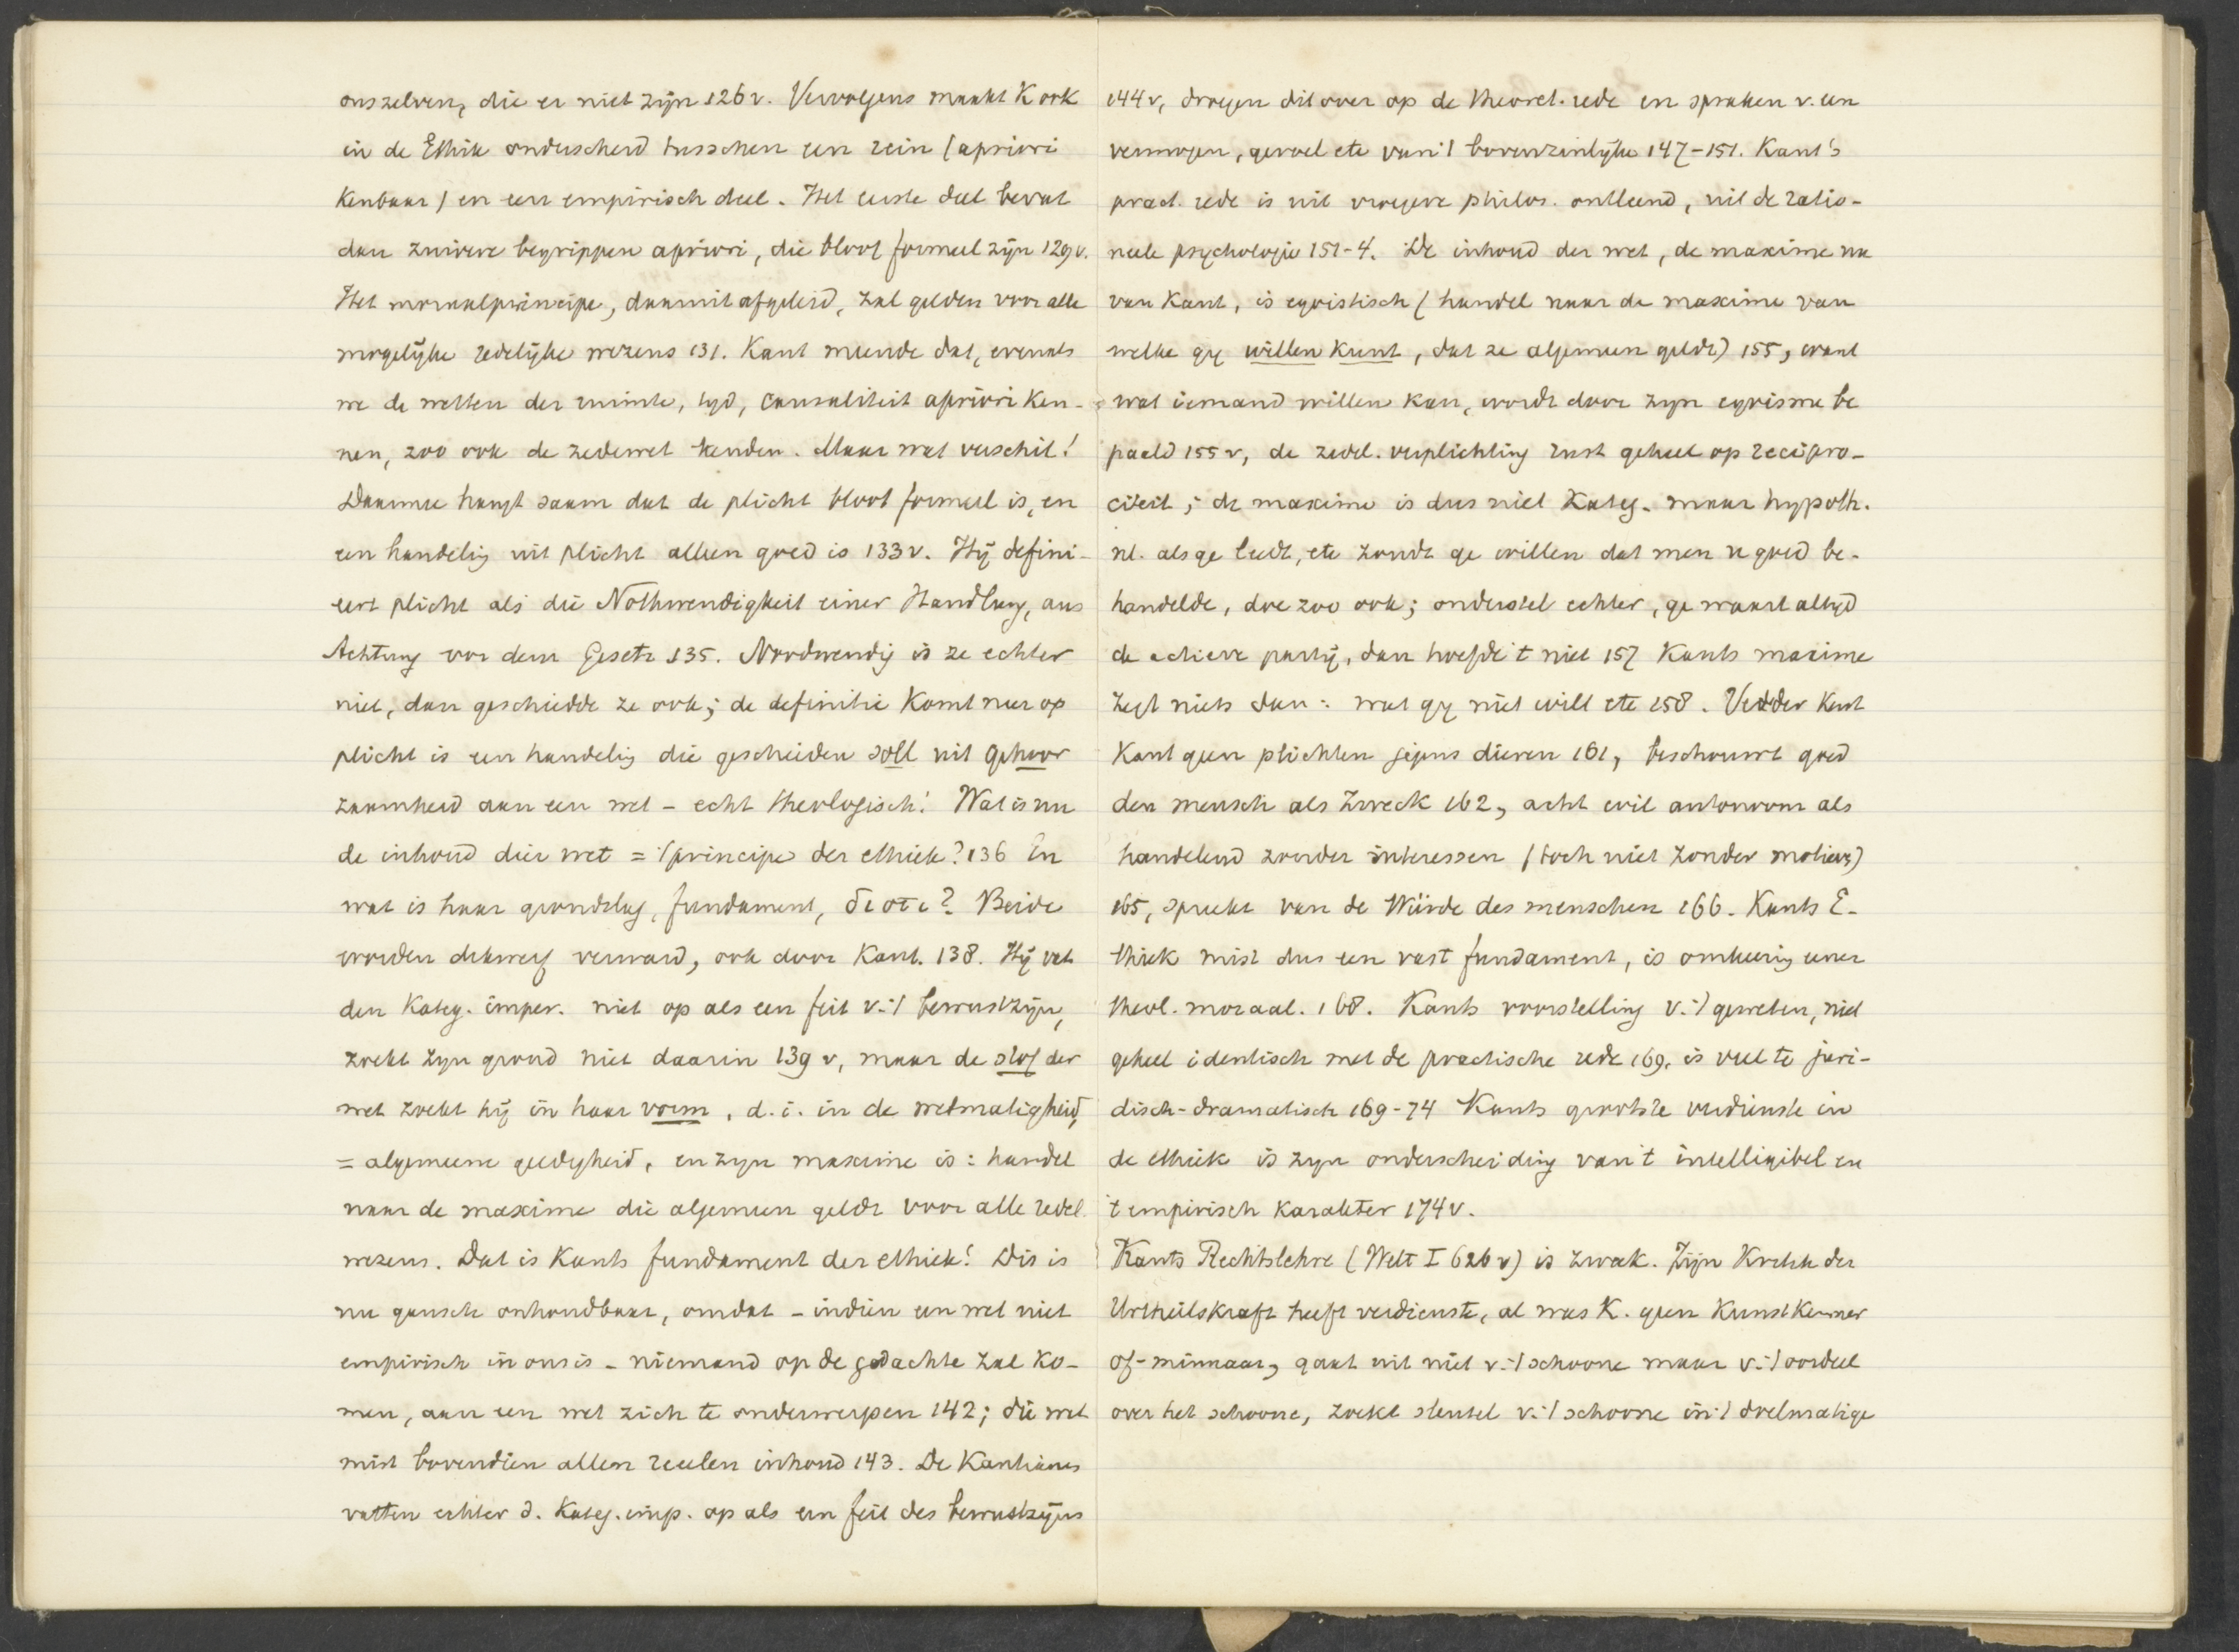 onszelven, die er niet zijn 126 v. Vervolgens maakt K ook
in de Ethik onderscheid tusschen een rein (apriori
kenbaar) en een empirisch deel. Het eerste deel bevat
dan zuivere begrippen apriori, die bloot formeel zijn 129 v.
Het moraalprincipe, daaruit afgeleid, zal gelden voor alle
mogelijke redelijke wezens 131. Kant meende dat, evenals
we de wetten der ruimte, tyd, causaliteit apriori ken-
nen, zoo ook de zedewet kenden. Maar wat verschil!
Daarmee hangt saam dat de plicht bloot formeel is, en
een handeling uit plicht alleen goed is 133 v. Hij defini-
eert plicht als die Nothwendigkeit einer Handlung, aus
Achtung vor dem Gesetz 135. Noodwendig is ze echter
niet, dan geschiedde ze ook; de definitie komt neer op
plicht is een handeling die geschieden soll uit gehoor
zaamheid aan een wet – echt theologisch! Wat is nu
de inhoud dier wet = 't principe der ethiek? 136 En
wat is haar grondslag, fundament, διοτι? Beide
worden dikwerf verward, ook door Kant. 138. Hij vat
den Kateg. imper. niet op als een feit v. 't bewustzijn,
zoekt zyn grond niet daarin 139 v, maar de stof der
wet zoekt hij in haar vorm, d. i. in de wetmatigheid,
= algemeene geldigheid, en zyn maxime is: handel
naar de maxime die algemeen geldt voor alle redel.
wezens. Dat is Kants fundament der ethiek! Dis is
nu gansch onhoudbaar, omdat – indien een wet niet
empirisch in ons is – niemand op de gedachte zal ko-
men, aan een wet zich te onderwerpen 142; die wet
mist bovendien allen reëelen inhoud 143. De Kantianes
vatten echter d. Kateg. imp. op als een feit des bewustzijns
144 v, droegen dit over op de theoret. rede en spraken v. een
vermogen, gevoel etc van 't bovenzinlijke 147-151. Kant's
pract. rede is uit vroegere philos. ontleend, uit de ratio-
neele psychologie 151-4. De inhoud der wet, de maxime nu
van Kant, is egoistisch (handel naar de maxime van
welke gy willen kunt, dat ze algemeen geldt) 155, want
wat iemand willen kan, wordt door zyn egoisme be
paald 155 v, de zedel. verplichting rust geheel op recipro-
citeit; de maxime is dus niet Kateg. maar hypoth.
nl. als ge leedt, etc zoudt ge willen dat men u goed be-
handelde, doe zoo ook; onderstel echter, ge waart altyd
de actieve party, dan hoefde 't niet 157 Kants maxime
zegt niets dan: wat gy niet wilt etc 158. Verder kent
Kant geen plichten jegens dieren 161, beschouwt goed
den mensch als Zweck 162, acht wil autonoom als
handelend zonder interessen (toch niet zonder motiev)
165, spreekt van de Würde des menschen 166. Kants E-
thiek mist dus een vast fundament, is omkeering eener
theol. moraal. 168. Kants voorstelling v. 't geweten, niet
geheel identisch met de practische rede 169, is veel te juri-
disch-dramatisch 169-74 Kants grootste verdienste in
de ethiek is zyn onderscheiding van 't intelligibel en
't empirisch karakter 174 v.
Kants Rechtslehre (Welt I 626 v) is zwak. Zijn Kritik der
Urtheilskraft heeft verdienste, al was K. geen Kunstkenner
of-minnaar, gaat uit niet v. 't schoone maar v. 't oordeel
over het schoone, zoekt sleutel v. 't schoone in 't doelmatige